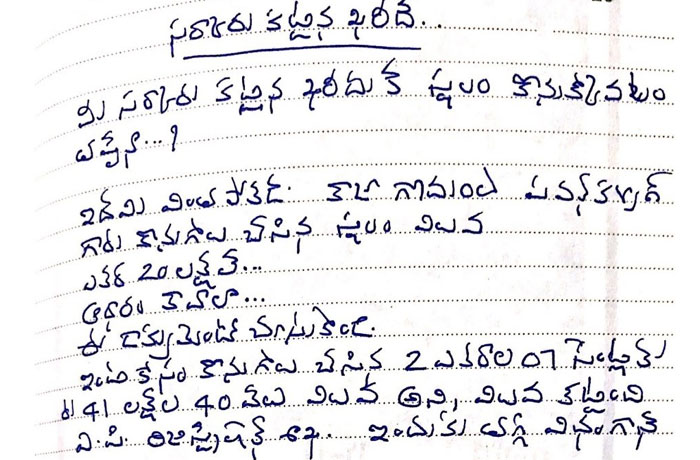 సర్కారు కట్టిన ఖరీదే..
మీ సర్కారు కట్టిన ఖరీదుకే స్థలం కొనుక్కోవటం
తప్పేనా...?
ఇదేమి వింత పోకడ. కాజా గ్రామంలో పవన్ కళ్యాణ్
గారు కొనుగోలు చేసిన స్థలం విలువ
ఎకరా 20 లక్షలే...
ఆధారం కావాలా...
ఈ డాక్యుమెంటే చూసుకోండి.
ఇంటి కోసం కొనుగోలు చేసిన 2 ఎకరాల 07 సెంట్లకు
రు 41 లక్షల 40 వేలు విలువ అని, విలువ కట్టింది
ఎ.పి. రిజిస్ట్రేషన్ శాఖ. ఇందుకు తగ్గ విధంగానే